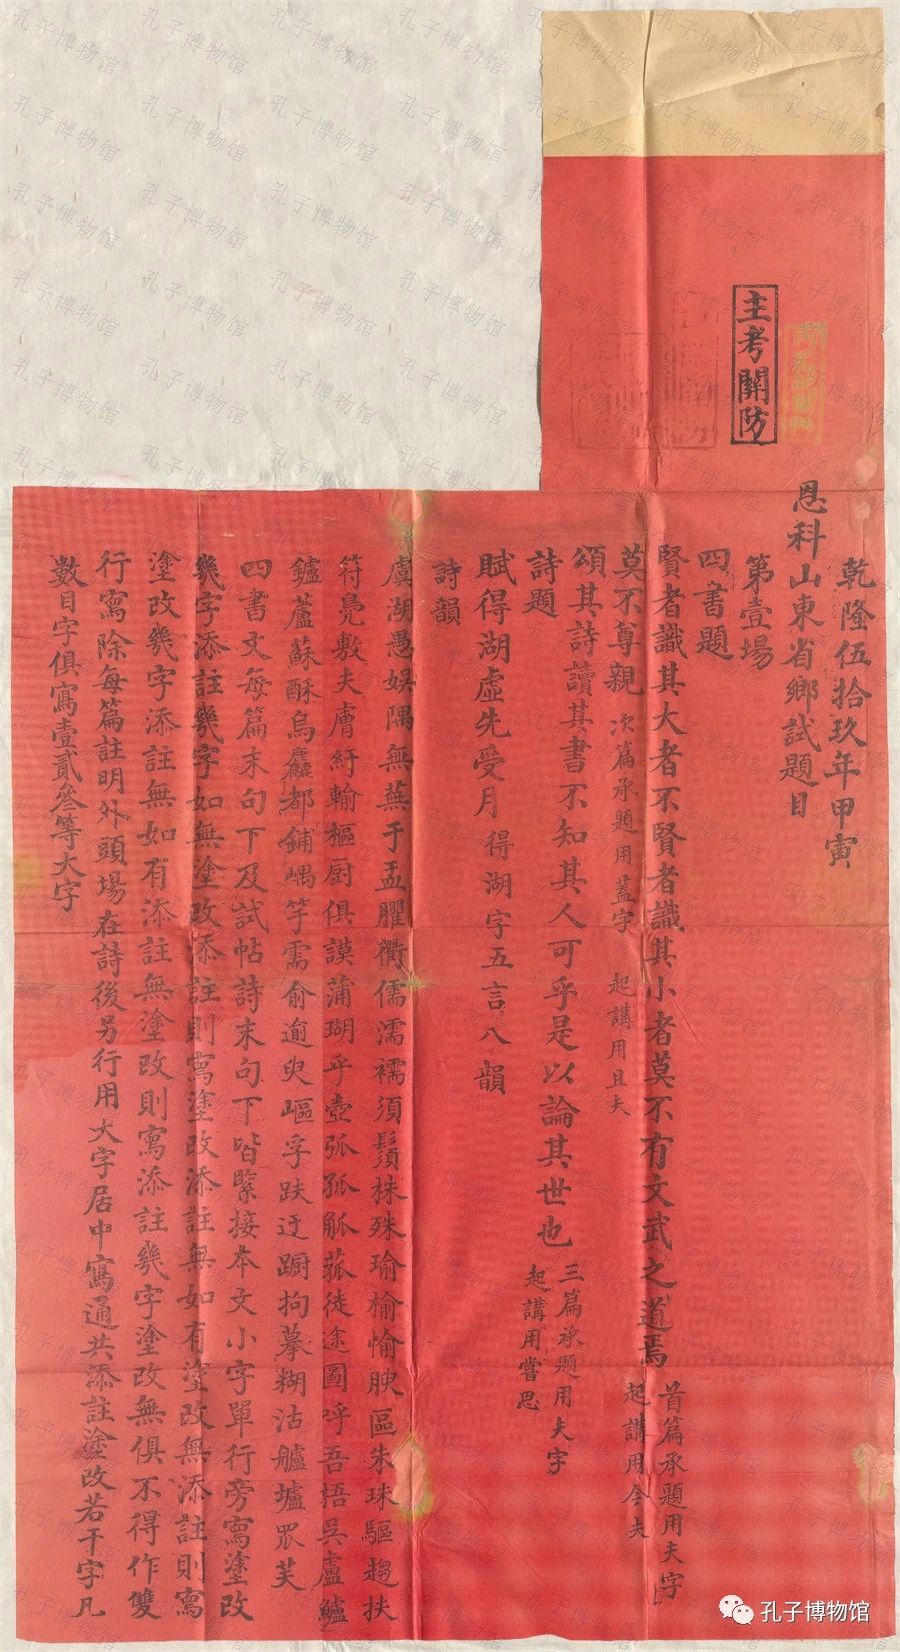 主考關防
乾隆伍拾玖年甲寅
恩科山東省鄉試題目
第壹場
四書題
賢者識其大者不賢者識其小者莫不有文武之道焉 首篇承題用夫字 起講用今夫
莫不尊親 次篇承題用蓋字 起講用且夫
頌其詩讀其書不知其人可乎是以論其世也 三篇承題用夫字 起講用嘗思
詩題
賦得湖虛先受月 得湖字五言八韻
詩韻
虞湖愚娛隅無蕪于盂臞衢儒濡襦須鬚株殊瑜榆愉腴區朱珠驅趨扶
符鳧敷夫膚紆輸樞厨俱謨蒲瑚乎壺弧孤觚菰徒途圖呼吾梧吳盧鱸
鑪蘆蘇酥烏麤都鋪嵎竽需俞逾臾嶇孚趺迂蹰拘摹糊沽艫壚罛芙
四書文每篇末句下及試帖詩末句下皆緊接本文小字單行旁寫塗改
幾字添註幾字如無塗改添註則寫塗改添註無如有塗改無添註則寫
塗改幾字添註無如有添註無塗改則寫添註幾字塗改無俱不得作雙
行寫除每篇註明外頭場在詩後另行用大字居中寫通共添註塗改若干字凡
數目字俱寫壹貳叁等大字
孔子博物馆